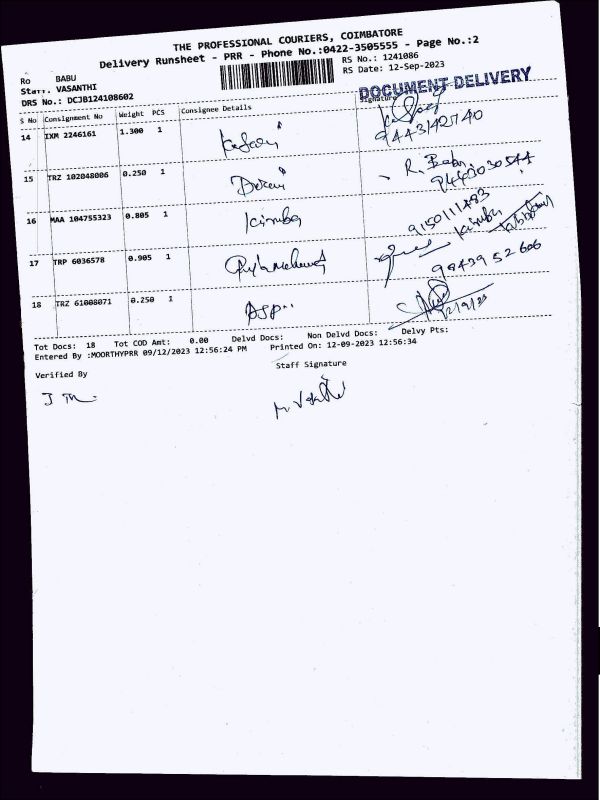 THE PROFESSIONAL COURIERS, COIMBATORE
Delivery Runsheet - PRR - Phone No.:0422-3505555 - Page No.:2
Ro BABU RS No.: 1241086
Staff. VASANTHI RS Date: 12-Sep-2023
DRS No.: DCJB124108602 DOCUMENT DELIVERY
S No Consignment No Weight PCS Consignee Details Signature
14 IXM 2246161 1.300 1
15 TRZ 102048006 0.250 1 R. Babu
16 MAA 104755323 0.805 1 Kiruba 9150111483
17 TRP 6036578 0.905 1 99439 52 606
18 TRZ 61008071 0.250 1 12/9/23
Tot Docs: 18 Tot COD Amt: 0.00 Delvd Docs: Non Delvd Docs: Delvy Pts:
Entered By :MOORTHYPRR 09/12/2023 12:56:24 PM Printed On: 12-09-2023 12:56:34
Verified By Staff Signature